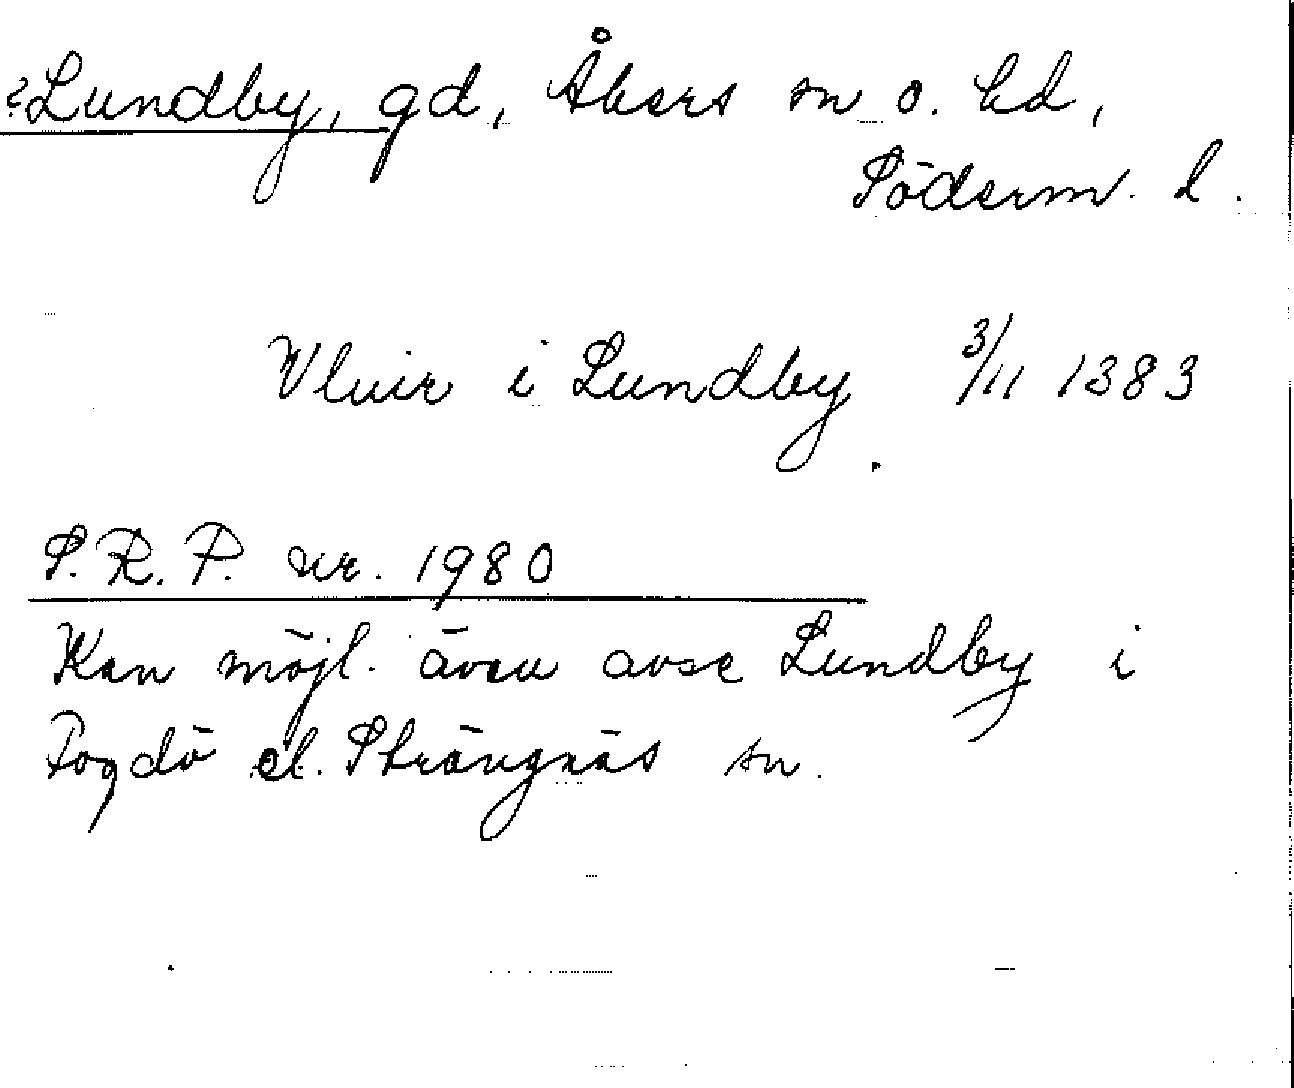 ?Lundby, gd, Åkers sn o. hd,
Söderm. l.
Vluir i Lundby 3/11 1383
S.R.P. nr. 1980
Kan möjl. även avse Lundby i
Fogdö el. Strängnäs sn.